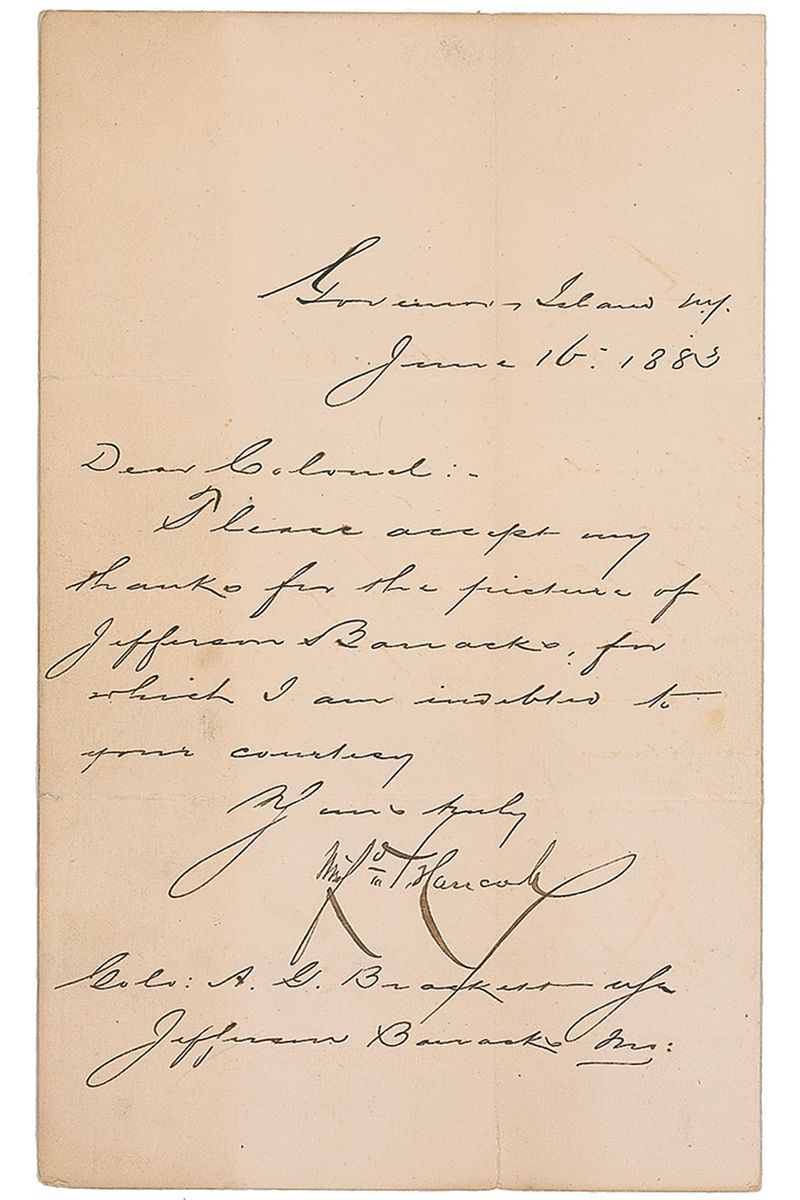 Governor's Island N.Y.
June 16: 1883
Dear Colonel:-
Please accept my
thanks for the picture of
Jefferson Barracks, for
which I am indebted to
your courtesy
Yours truly
Winfd S. Hancock
Colo: A. G. Brackett USA
Jefferson Barracks Mo: